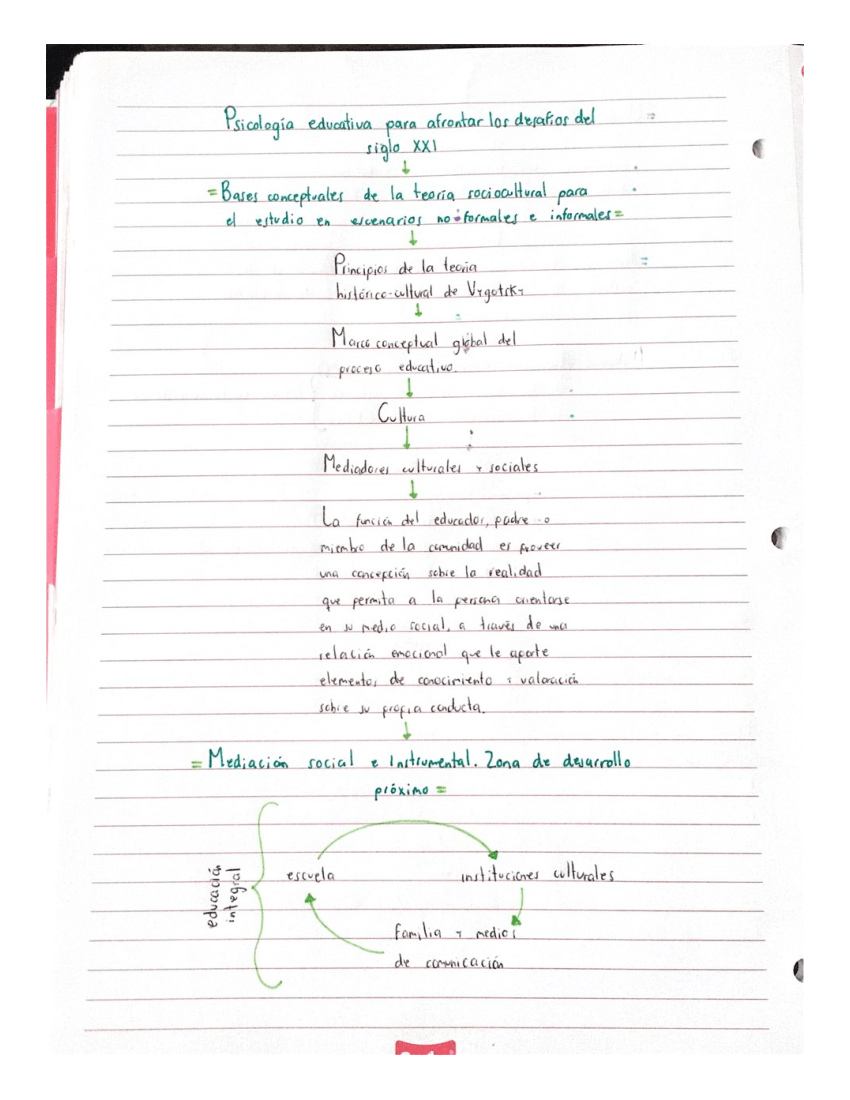 Psicología educativa para afrontar los desafíos del
siglo XXI
= Bases conceptuales de la teoría sociocultural para
el estudio en escenarios no-formales e informales =
Principios de la teoría
histórico-cultural de Vygotsky
Marco conceptual global del
proceso educativo.
Cultura
Mediadores culturales y sociales
La función del educador, padre o
miembro de la comunidad es proveer
una concepción sobre la realidad
que permita a la persona orientarse
en su medio social, a través de una
relación emocional que le aporte
elementos de conocimiento y valoración
sobre su propia conducta.
= Mediación social e Instrumental. Zona de desarrollo
próximo =
educación
integral
escuela
instituciones culturales
familia y medios
de comunicación